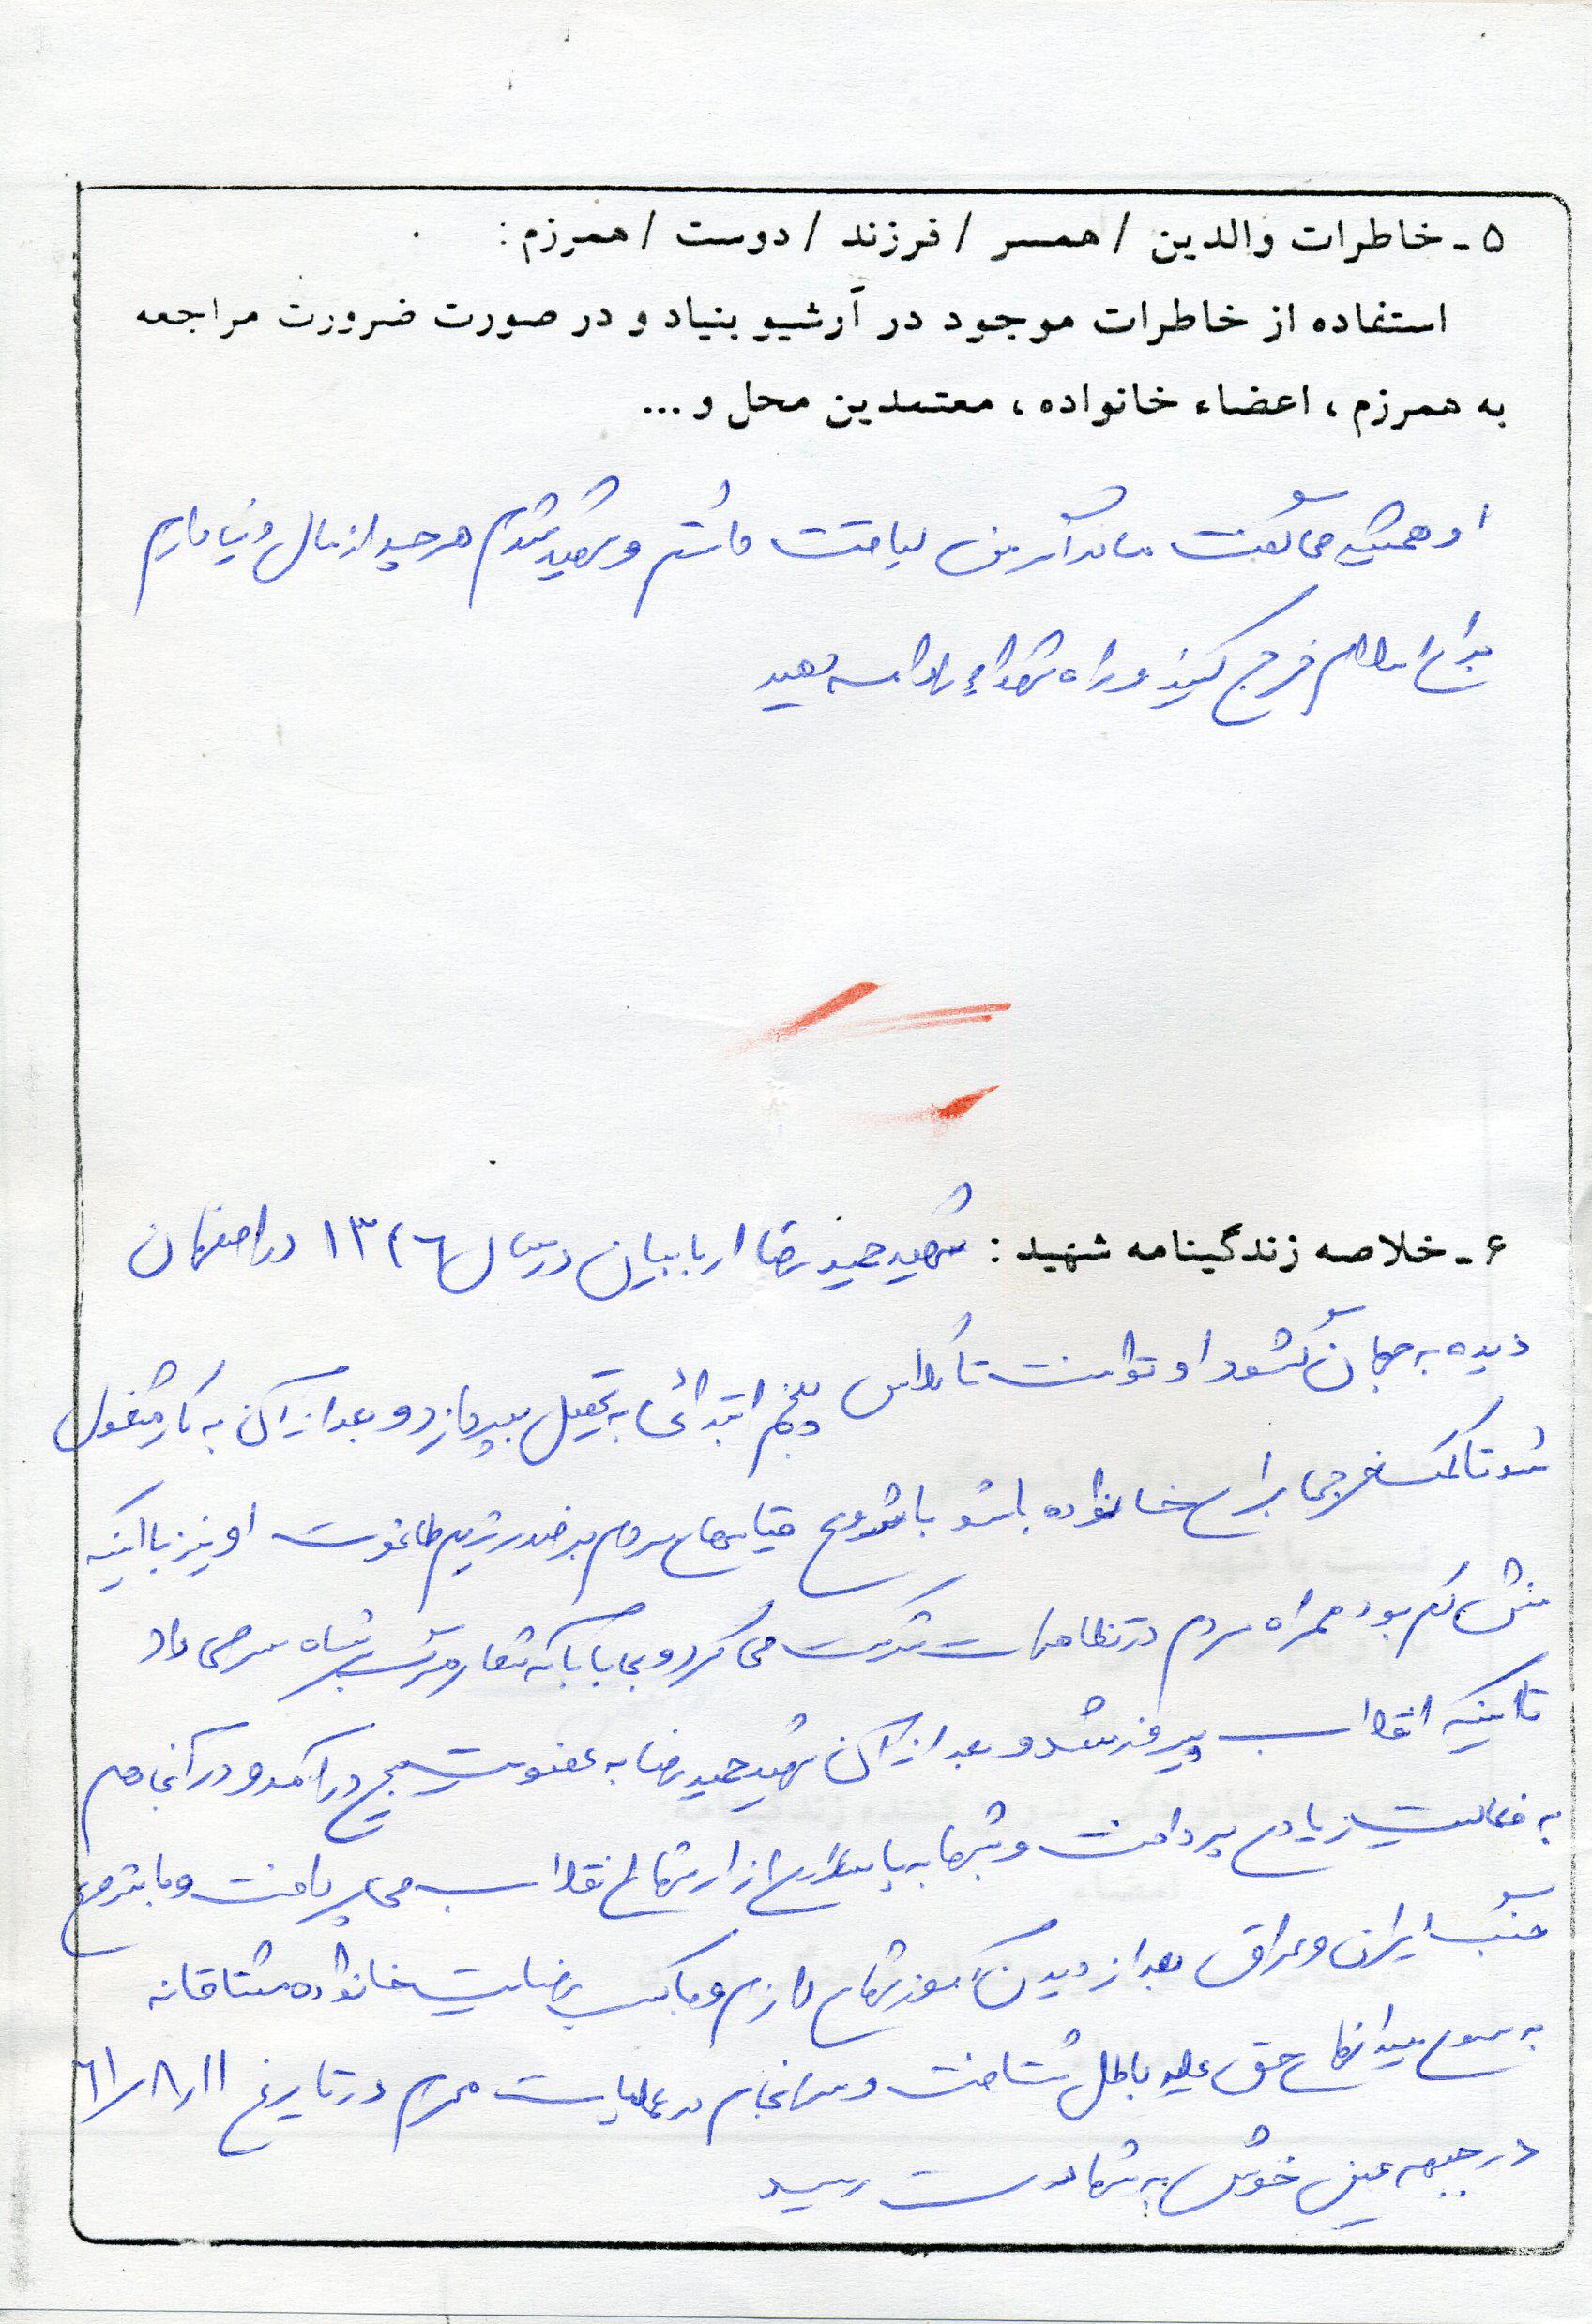 ۵ - خاطرات والدین / همسر / فرزند / دوست / همرزم :
استفاده از خاطرات موجود در آرشیو بنیاد و در صورت ضرورت مراجعه
به همرزم ، اعضاء خانواده ، معتمدین محل و ...
او همیشه می گفت مادر اگر من لیاقت داشتم و شهید شدم هر چه از مال دنیا دارم
برای اسلام خرج کنید و راه شهداء را ادامه دهید
۶ - خلاصه زندگینامه شهید : شهید حمید رضا اربابیان در سال ۱۳۴۶ در اصفهان
دیده به جهان گشود او توانست تا کلاس پنجم ابتدائی به تحصیل بپردازد و بعد از آن به کار مشغول
شد تا کمک خرجی برای خانواده باشد با شروع قیامهای مردم بر ضد رژیم طاغوت او نیز با اینکه
سنش کم بود همراه مردم در تظاهرات شرکت می کرد و شعار مرگ بر شاه سر می داد
تا اینکه انقلاب پیروز شد و بعد از آن شهید حمید رضا به عضویت بسیج در آمد و در آنجا هم
به فعالیت زیادی پرداخت و شبها به پاسداری از ارزشهای انقلاب می پرداخت و با شروع
جنگ ایران و عراق بعد از دیدن آموزشهای لازم و با کسب رضایت خانواده مشتاقانه
به سوی میدانهای حق علیه باطل شتافت و سرانجام در عملیات محرم در تاریخ ۶۱/۸/۱۱
در جبهه عین خوش به شهادت رسید